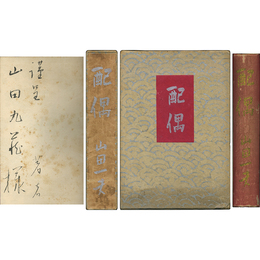 謹呈
山田九蔬様
著者
配偶
山田一夫
配偶
配偶
山田一夫